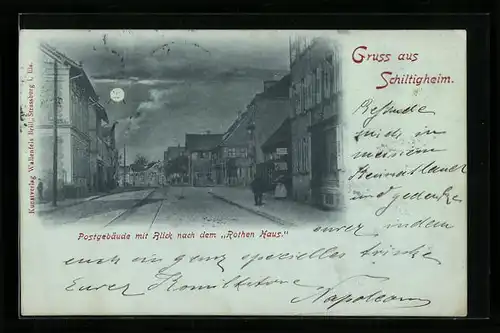 Gruss aus
Schiltigheim.
Kunstverlag Wallenfels Brill, Strassburg i. Els.
Postgebäude mit Blick nach dem „Rothen Haus."
Befinde
mich in
meinem
Heimatland
und gedenke
eurer indem
euch ein ganz specielles trinke
Eurer
Napoleon